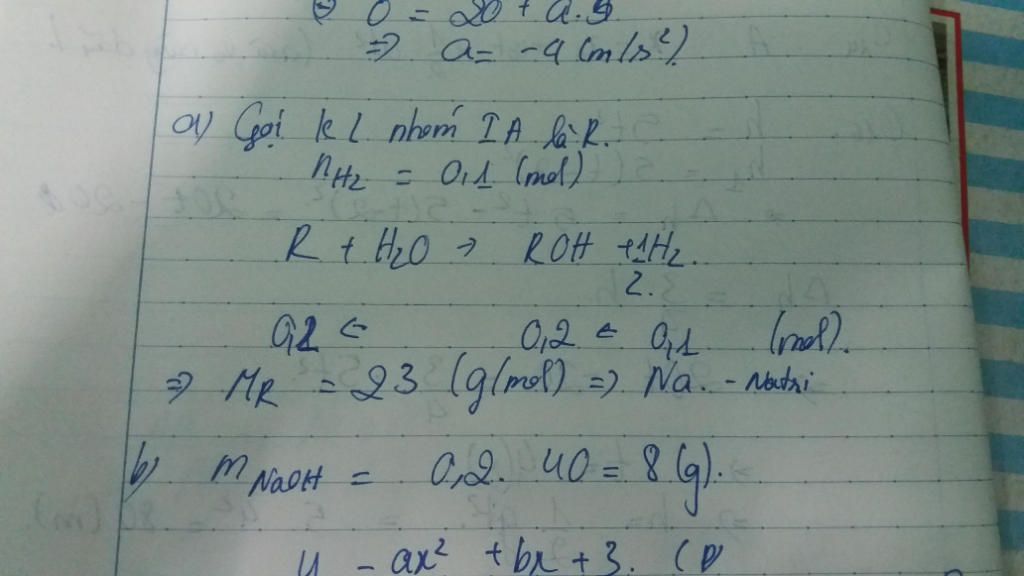 ⇔ 0 = 20 + a.5
⇒ a = -4 (m/s²).
a) Gọi kL nhóm IA là R.
nH2 = 0,1 (mol)
R + H2O → ROH + 1/2 H2.
0,2 ← 0,2 ← 0,1 (mol).
⇒ MR = 23 (g/mol) ⇒ Na. - Natri
b) mNaOH = 0,2. 40 = 8 (g).
y = ax² + bx + 3. (P)